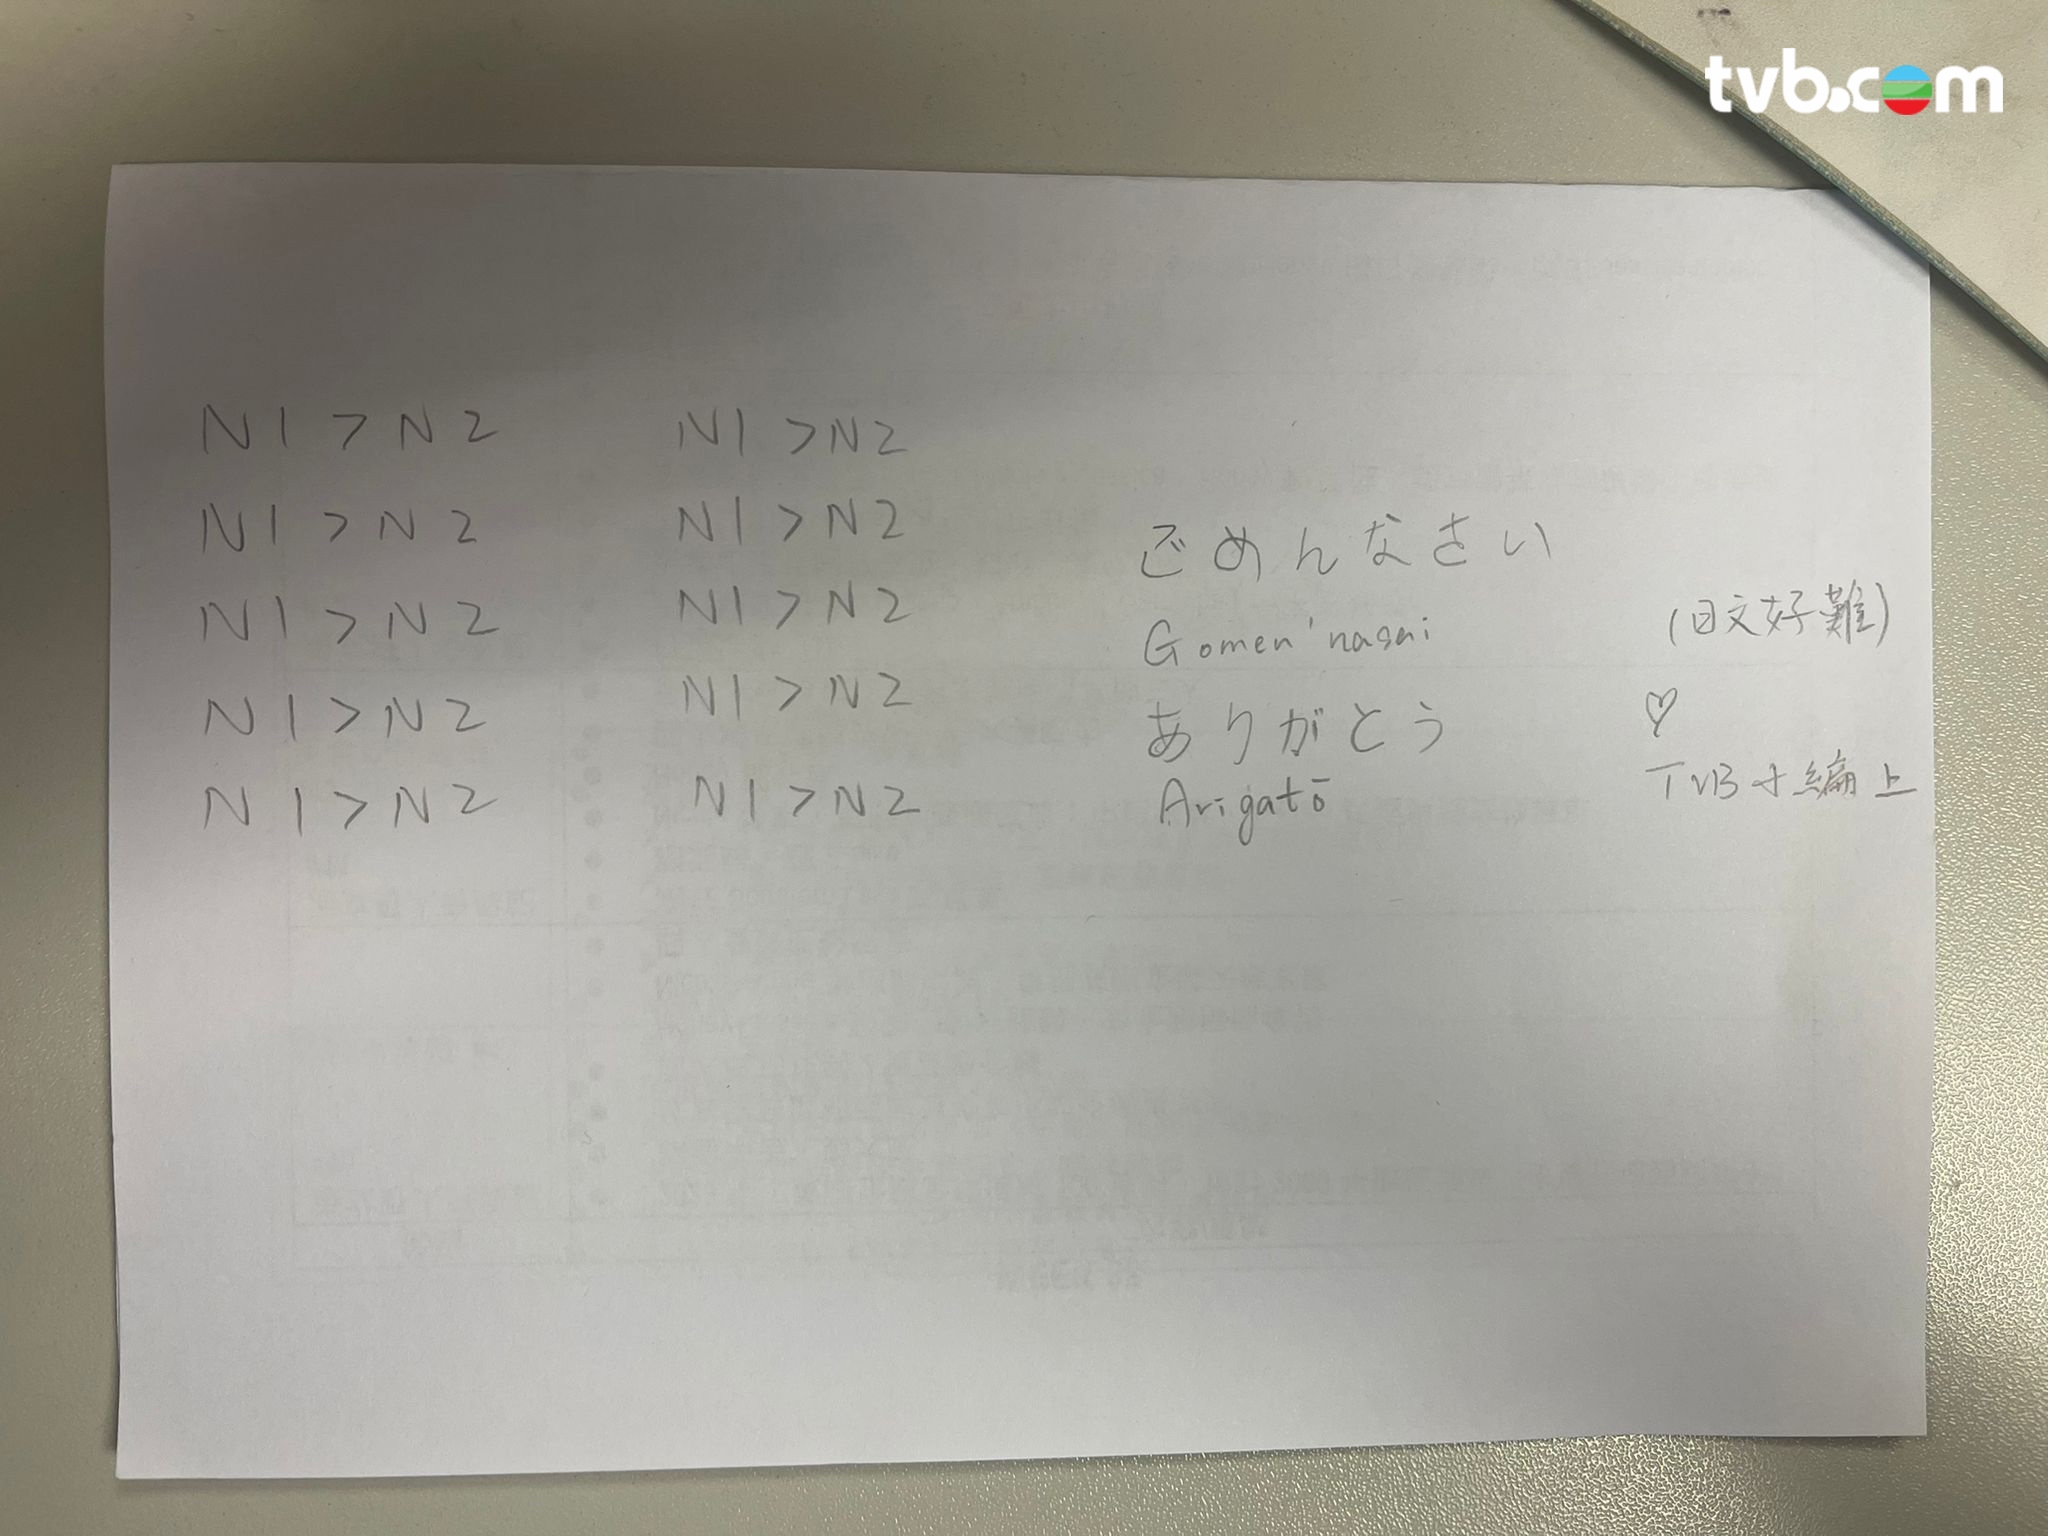 tvb.com
N1 > N2
N1 > N2
N1 > N2
N1 > N2
N1 > N2
N1 > N2
N1 > N2
N1 > N2
N1 > N2
N1 > N2
ごめんなさい
Gomen'nasai
ありがとう
Arigatō
(日文好難)
♡
TVB小編上